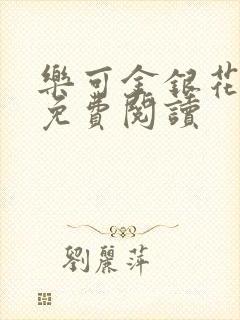 樂可金銀花
免費閱讀
劉麗萍